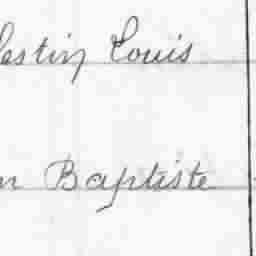 lestin Louis
n Baptiste